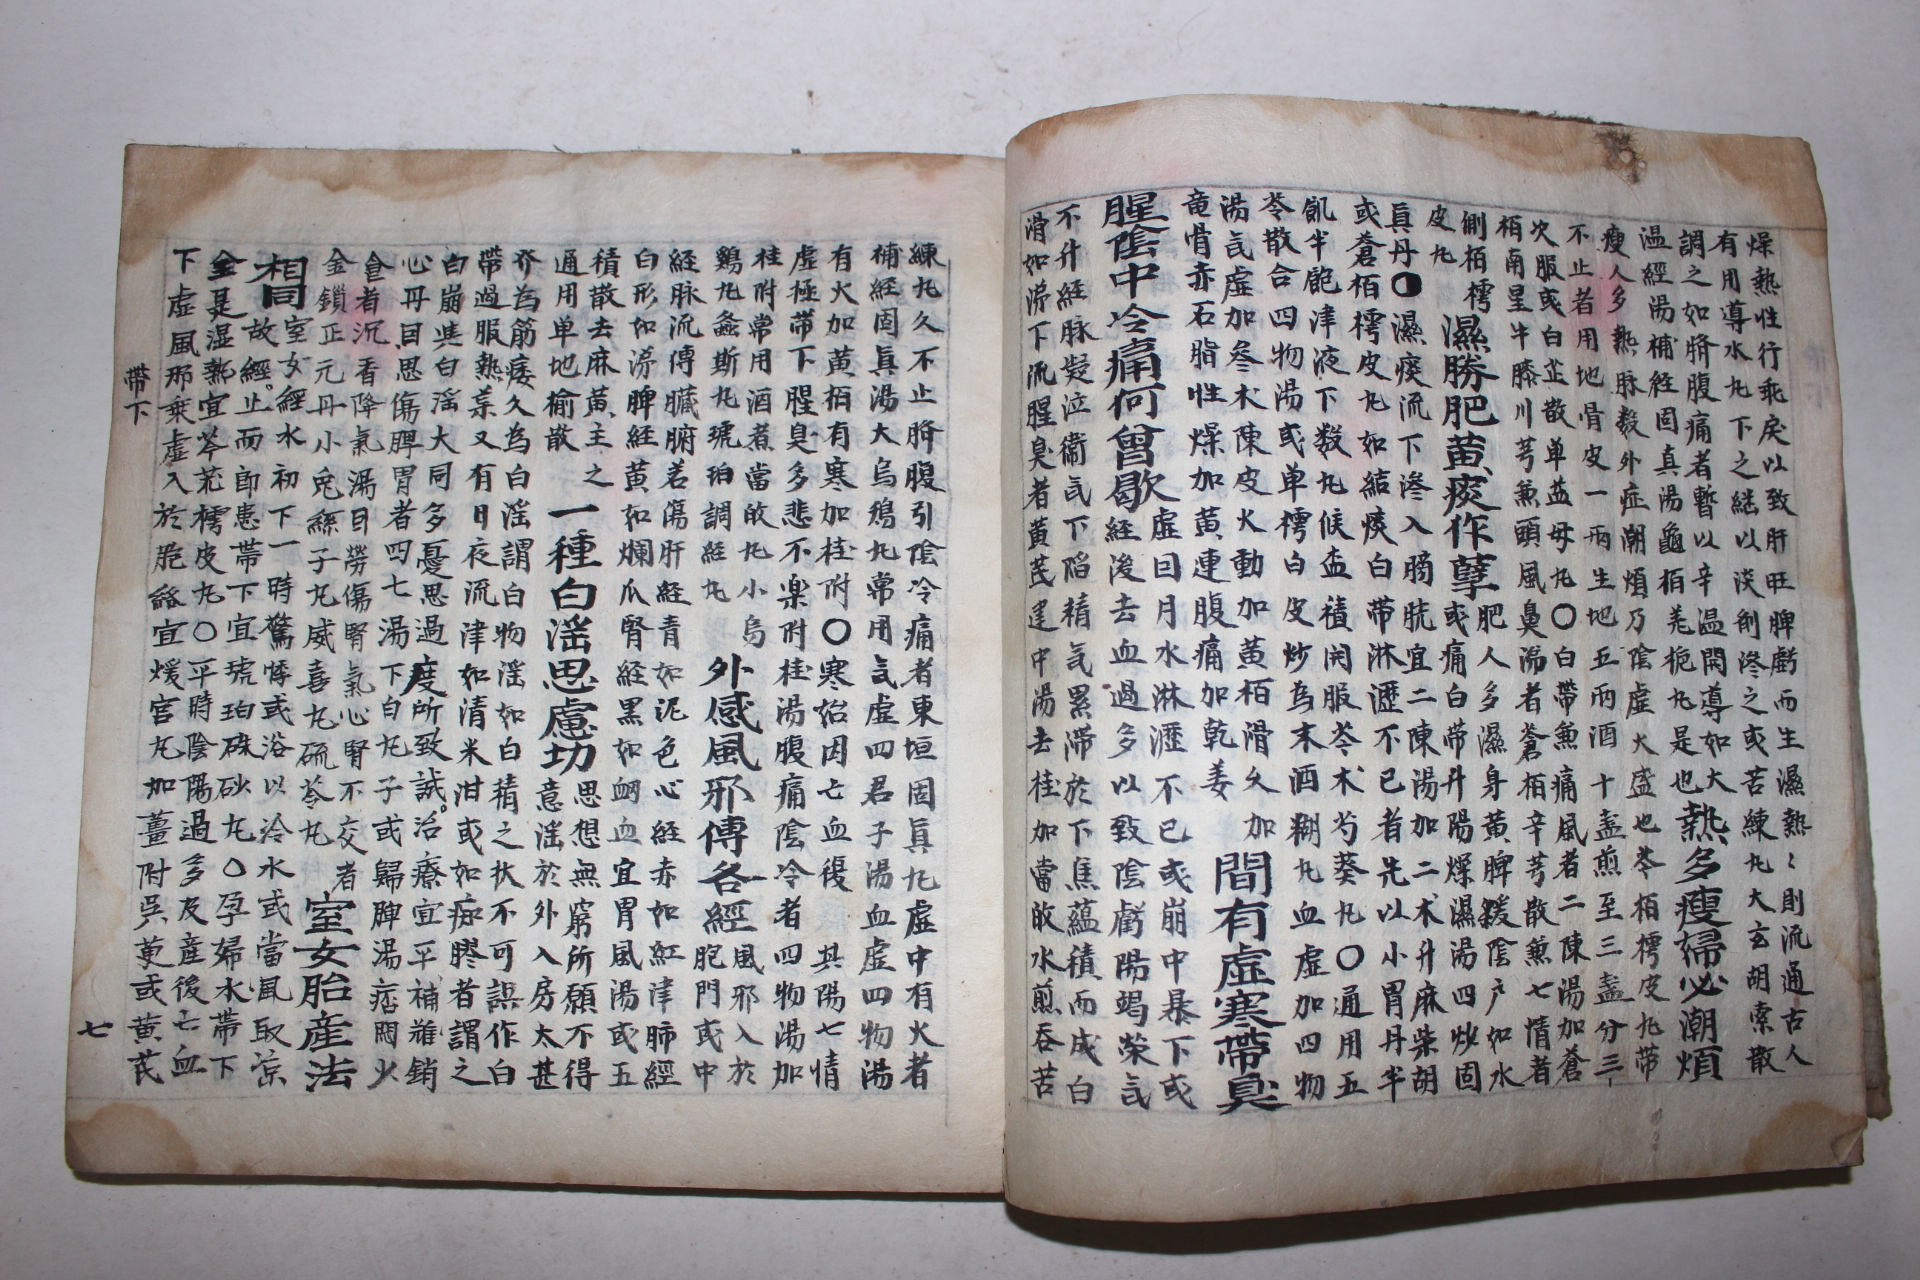 燥熱性行乖戾以致肝旺脾虧而生濕熱〻則流通古人
有用導水丸下之継以淡剤滲之或苦練丸大玄胡索散
調之如臍腹痛者暫以辛温開導如大
温經湯補経固真湯龜栢羌梔丸是也熱多瘦婦必潮煩
瘦人多熱脉数外症潮煩乃陰虚火盛也苓栢樗皮丸帶
不止者用地骨皮一兩生地五兩酒十盞煎至三盞分三
次服或白芷散单益母丸〇白帶兼痛風者二陳湯加蒼
栢南星牛膝川芎兼頭風臭湯者蒼栢辛芎散兼七情者
側栢樗
皮丸濕勝肥黄痰作孽肥人多濕身黄脾緩陰戶如水
或痛白帶升陽燥濕湯四炒固
真丹〇濕痰流下滲入膓胱宜二陳湯加二术升麻柴胡
或蒼栢樗皮丸如結痰白帶淋瀝不已者先以小胃丹半
飢半飽津液下数丸候盃積闲服苓术芍葵丸〇通用五
苓散合四物湯或单樗白皮炒為末酒糊丸血虚加四物
湯氣虚加參术陳皮火動加黄栢滑久加
竜骨赤石脂性燥加黄連腹痛加乾姜間有虚寒帶臭
腥陰中冷痛何曾歇虚因月水淋瀝不已或崩中暴下或
經後去血過多以致陰虧陽竭榮气
不升経脉凝泣衛气下陷精气累滞於下焦蘊積而成白
滑如涕下流腥臭者黄芪建中湯去桂加當敀水煎吞苦
練丸久不止臍腹引陰冷痛者東垣固真丸虚中有火者
補経固真湯大烏鳮丸常用气虚四君子湯血虚四物湯
有火加黄栢有寒加桂附〇寒始因亡血復亡其陽七情
虚極帶下腥臭多悲不楽附桂湯腹痛陰冷者四物湯加
桂附常用酒煮當敀丸小烏
鷄丸螽斯丸琥珀調経丸外感風邪傳各經風邪入於
胞門或中
経脉流傳臓腑若傷肝経青如泥色心経赤如紅津肺經
白形如涕脾經黄如爛爪腎経黒如衂血宜胃風湯或五
積散去麻黄主之
通用单地榆散一種白淫思慮切思想無窮所願不得
意淫於外入房太甚
乔為筋痿久為白淫謂白物淫如白精之状不可誤作白
帶過服熱薬又有日夜流津如清米泔或如痴膠者謂之
白崩與白淫大同多憂思過度所致誠治療宜平補雜銷
心丹因思傷脾胃者四七湯下白丸子或歸脾湯痞悶火
會者沉香降氣湯因勞傷腎氣心腎不交者
金鎖正元丹小兎絲子丸威喜丸硫苓丸室女胎産法
相同室女經水初下一時驚悸或浴以冷水或當風取凉
故經止而即患帶下宜琥珀硃砂丸〇孕婦水帶下
全是湿熱宜苓芜樗皮丸〇平時陰陽過多及産後亡血
下虚風邪乗虚入於胞絡宜煖宮丸加薑附呉茰或黄芪
帶下
七